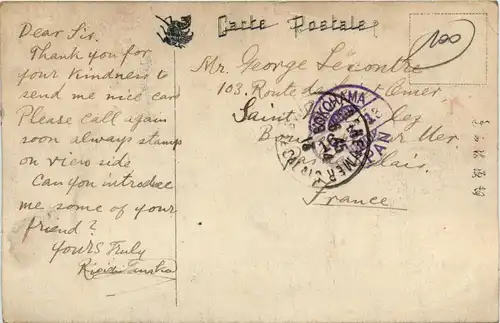 Carte Postale
Dear Sir.
Thank you for
your Kindness to
send me nice card
Please call again
soon always stamps
on view side
Can you introduce
me some of your
friend?
Yours Truly
Mr. George Lecontre
103. Route de Omer
Saint
Mer
Pas Calais.
France
YOKOHAMA
JAPAN
100